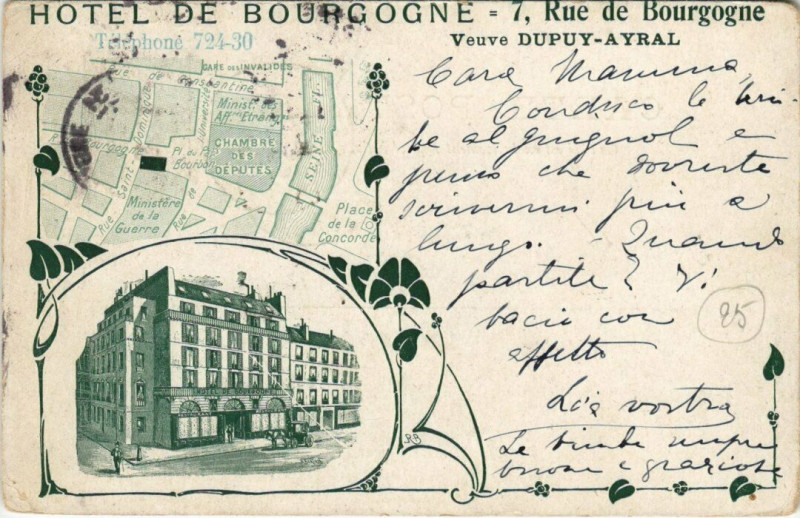 HOTEL DE BOURGOGNE = 7, Rue de Bourgogne
Téléphone 724-30
Veuve DUPUY-AYRAL
GARE DES INVALIDES
Rue de Constantine
Minist. des
Aff. Etrang.
Université
CHAMBRE
DES
DÉPUTÉS
Pl. du Pal.
Bourbon
Bourgogne
Rue Saint-Dominique
SEINE FL.
Ministère
de la
Guerre
Rue de
Place
de la
Concorde
Cara Mamma,
Conduco le bim-
be al guignol e
penso che dovreste
scrivermi più a
lungo. - Quando
partite? Vi
bacio con
affetto
La vostra
Le bimbe sempre
buone e graziose
25
RB